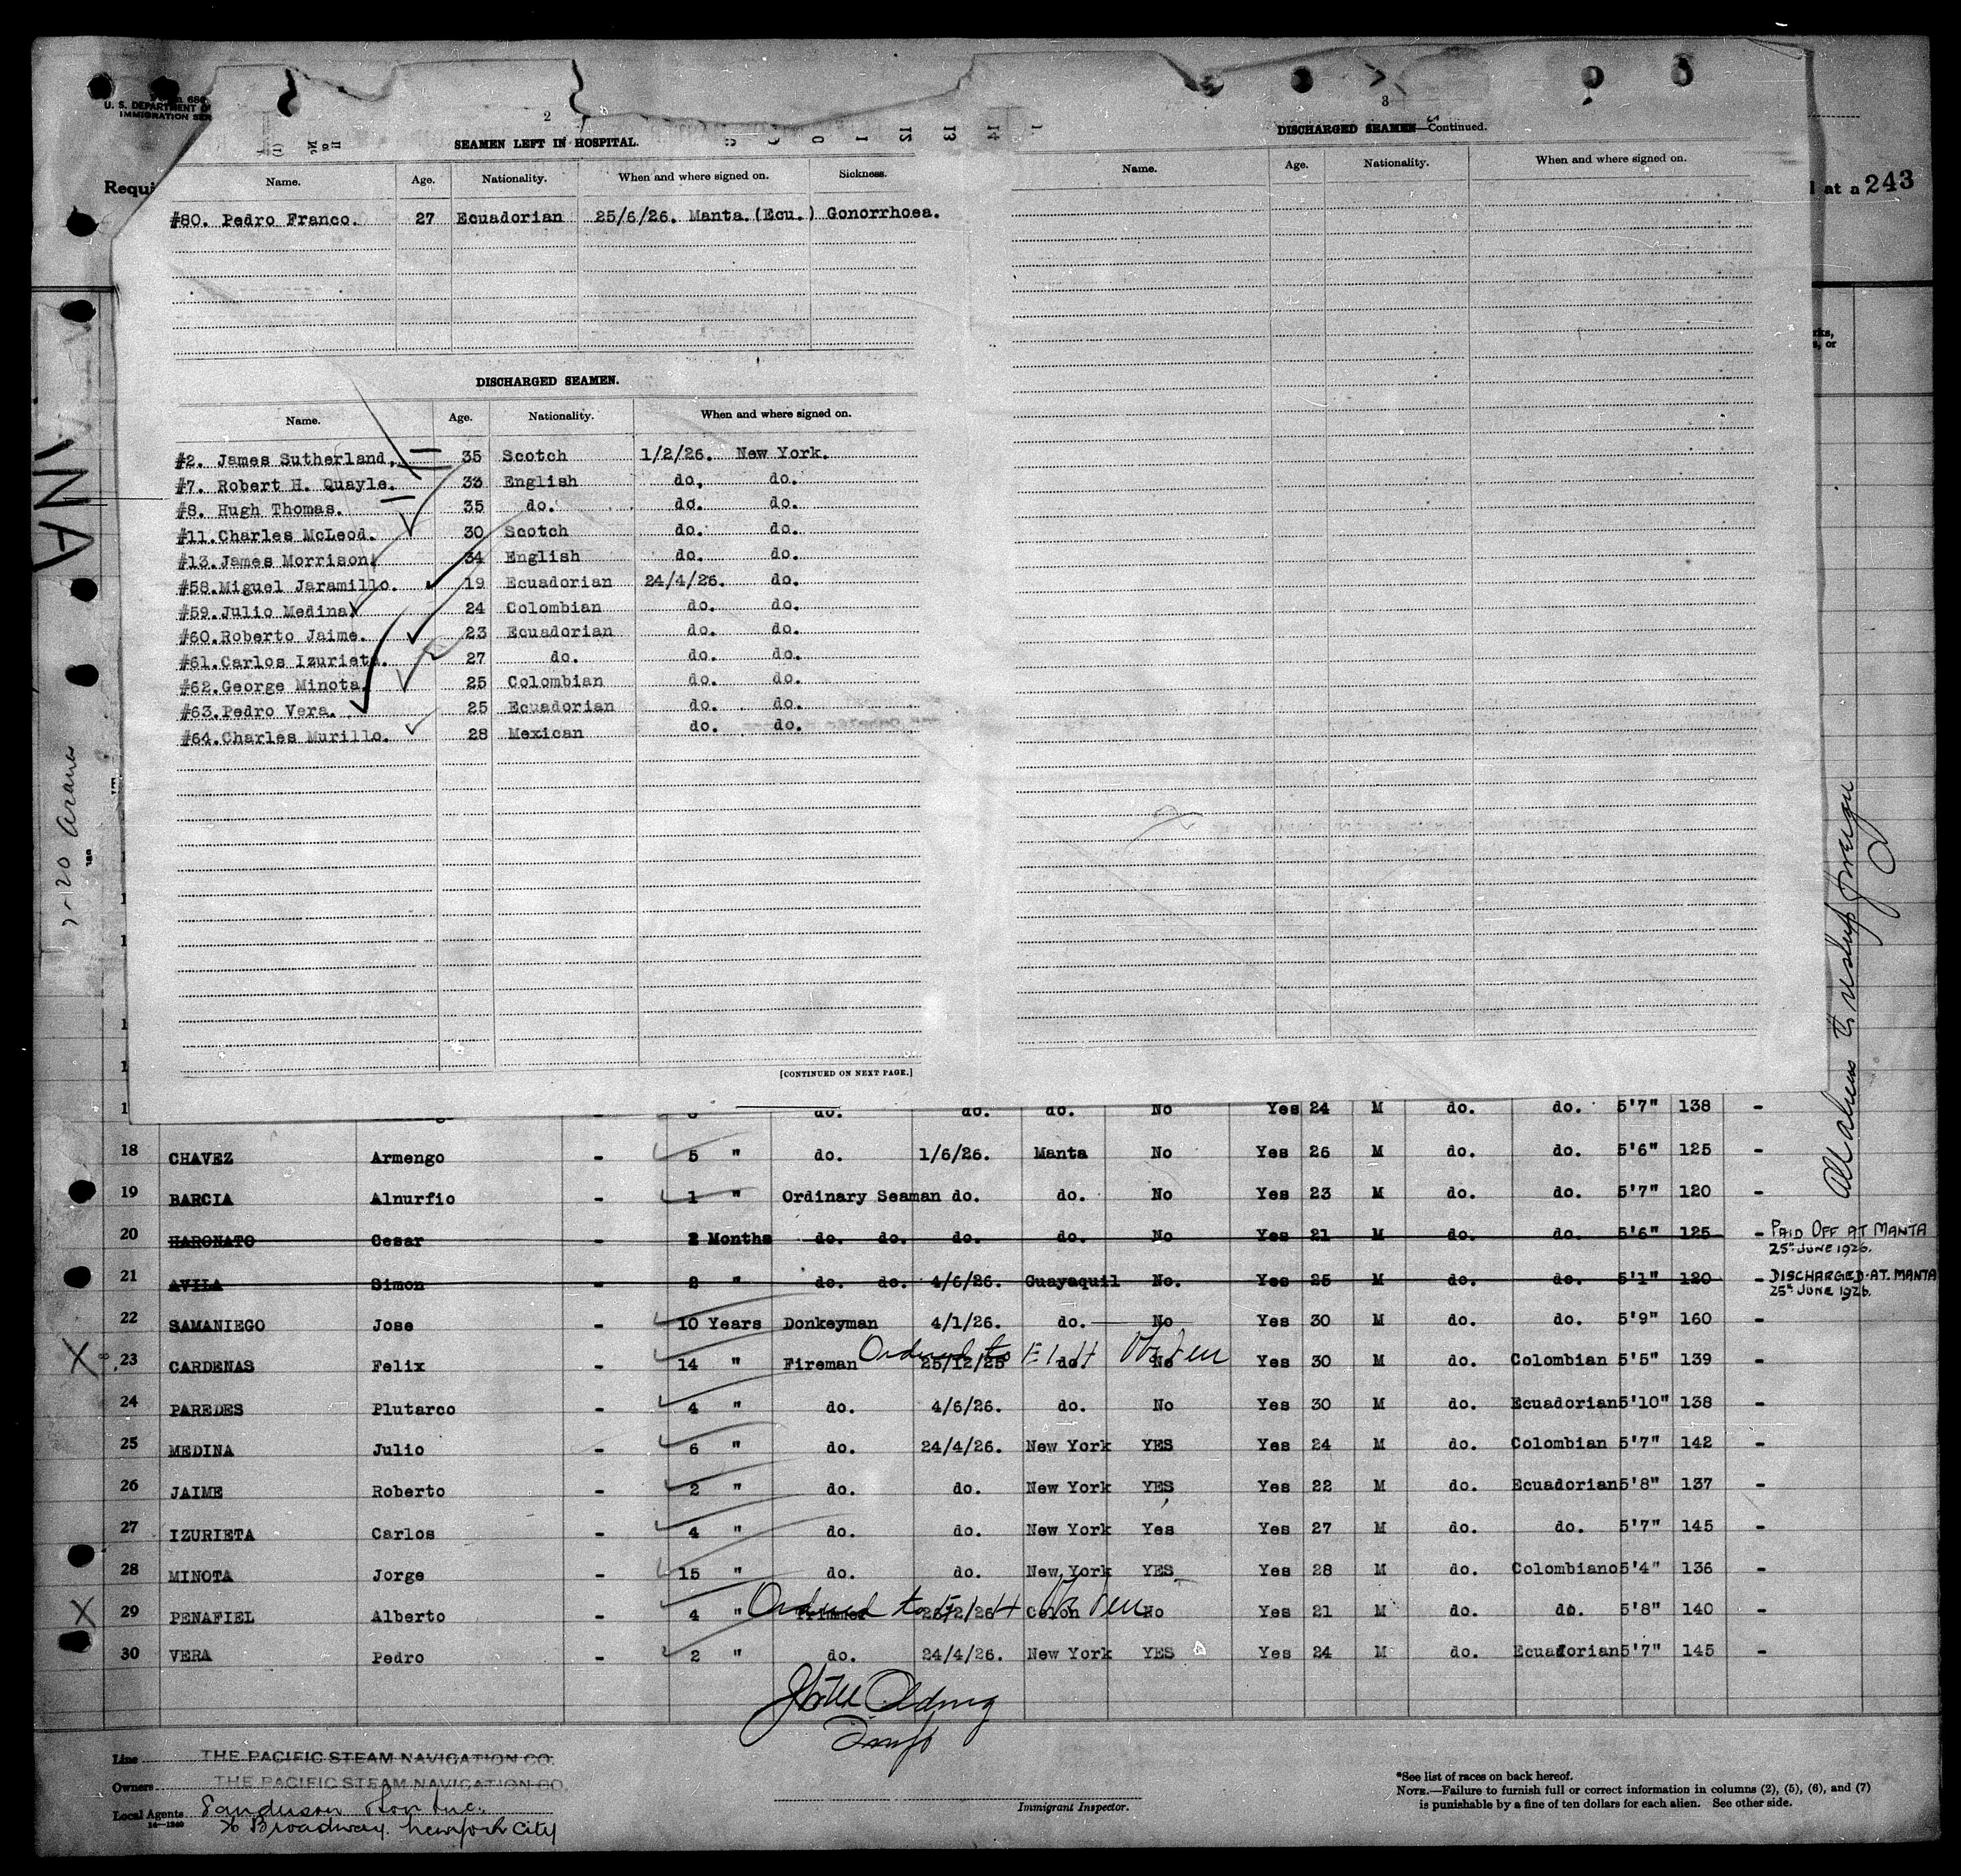 U. S. DEPARTMENT
IMMIGRATION SER
Requi
l at a 243
2
SEAMEN LEFT IN HOSPITAL.
Name. Age. Nationality. When and where signed on. Sickness.
#80. Pedro Franco. 27 Ecuadorian 25/6/26. Manta. (Ecu.) Gonorrhoea.
DISCHARGED SEAMEN.
Name. Age. Nationality. When and where signed on.
#2. James Sutherland. 35 Scotch 1/2/26. New York.
#7. Robert H. Quayle. 33 English do. do.
#8. Hugh Thomas. 35 do. do. do.
#11. Charles McLeod. 30 Scotch do. do.
#13. James Morrison. 34 English do. do.
#58. Miguel Jaramillo. 19 Ecuadorian 24/4/26. do.
#59. Julio Medina 24 Colombian do. do.
#60. Roberto Jaime. 23 Ecuadorian do. do.
#61. Carlos Izurieta. 27 do. do. do.
#62. George Minota. 25 Colombian do. do.
#63. Pedro Vera. 25 Ecuadorian do. do.
#64. Charles Murillo. 28 Mexican do. do.
[CONTINUED ON NEXT PAGE.]
3
DISCHARGED SEAMEN—Continued.
Name. Age. Nationality. When and where signed on.
All aliens to reship foreign
do. do. do. No Yes 24 M do. do. 5'7" 138 -
18 CHAVEZ Armengo - 5 " do. 1/6/26. Manta No Yes 26 M do. do. 5'6" 125 -
19 BARCIA Alnurfio - 1 " Ordinary Seaman do. do. No Yes 23 M do. do. 5'7" 120 -
20 HARONATO Cesar - 2 Months do. do. do. do. No Yes 21 M do. do. 5'6" 125 - PAID OFF AT MANTA
25th JUNE 1926.
21 AVILA Simon - 2 " do. do. 4/6/26. Guayaquil No. Yes 25 M do. do. 5'1" 120 - DISCHARGED AT MANTA
25th JUNE 1926.
22 SAMANIEGO Jose - 10 Years Donkeyman 4/1/26. do. No Yes 30 M do. do. 5'9" 160 -
Ordered to
X 23 CARDENAS Felix - 14 " Fireman 25/12/25 do. No Yes 30 M do. Colombian 5'5" 139 -
24 PAREDES Plutarco - 4 " do. 4/6/26. do. No Yes 30 M do. Ecuadorian 5'10" 138 -
25 MEDINA Julio - 6 " do. 24/4/26. New York YES Yes 24 M do. Colombian 5'7" 142 -
26 JAIME Roberto - 2 " do. do. New York YES Yes 22 M do. Ecuadorian 5'8" 137 -
27 IZURIETA Carlos - 4 " do. do. New York Yes Yes 27 M do. do. 5'7" 145 -
28 MINOTA Jorge - 15 " do. do. New York YES Yes 28 M do. Colombiano 5'4" 136 -
Ordered to
X 29 PENAFIEL Alberto - 4 " Colon No Yes 21 M do. do. 5'8" 140 -
30 VERA Pedro - 2 " do. 24/4/26. New York YES Yes 24 M do. Ecuadorian 5'7" 145 -
Line THE PACIFIC STEAM NAVIGATION CO.
Owners THE PACIFIC STEAM NAVIGATION CO.
Local Agents Sanderson Son Inc.
26 Broadway. New York City
Immigrant Inspector.
*See list of races on back hereof.
NOTE.—Failure to furnish full or correct information in columns (2), (5), (6), and (7)
is punishable by a fine of ten dollars for each alien. See other side.